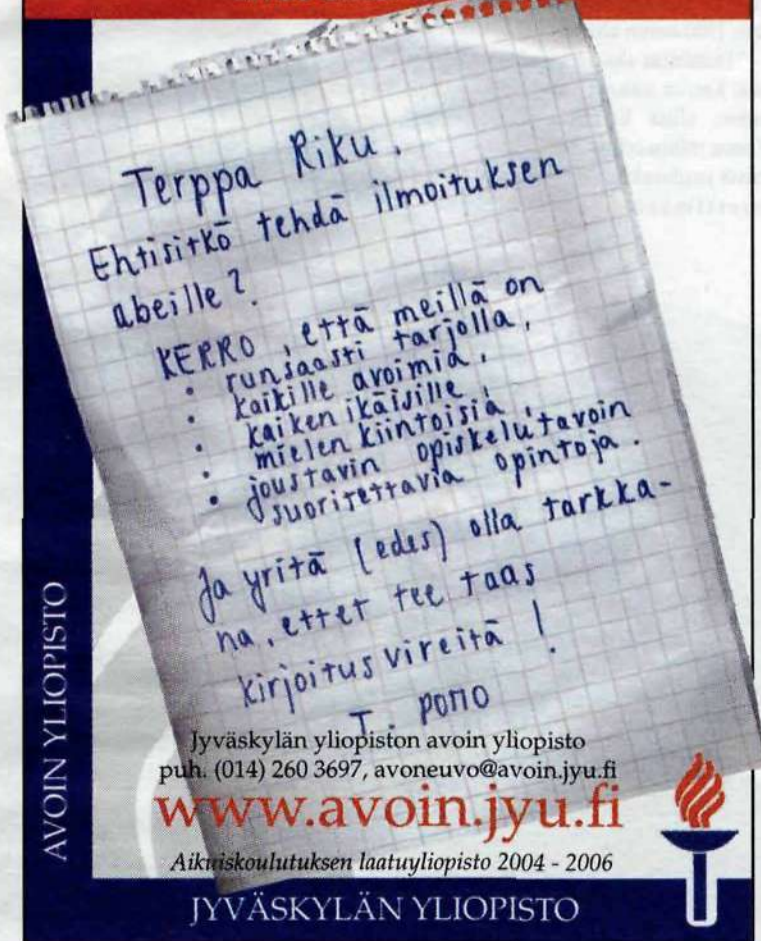 Terppa Riku.
Ehtisitkö tehdä ilmoituksen
abeille?
KERRO, että meillä on
• runsaasti tarjolla,
• kaikille avoimia,
• kaiken ikäisille,
• mielenkiintoisia,
• joustavin opiskelutavoin
suoritettavia opintoja.
Ja yritä (edes) olla tarkka-
na, ettet tee taas
kirjoitusvireitä!
T. pomo
Jyväskylän yliopiston avoin yliopisto
puh. (014) 260 3697, avoneuvo@avoin.jyu.fi
www.avoin.jyu.fi
Aikuiskoulutuksen laatuyliopisto 2004 - 2006
JYVÄSKYLÄN YLIOPISTO
AVOIN YLIOPISTO